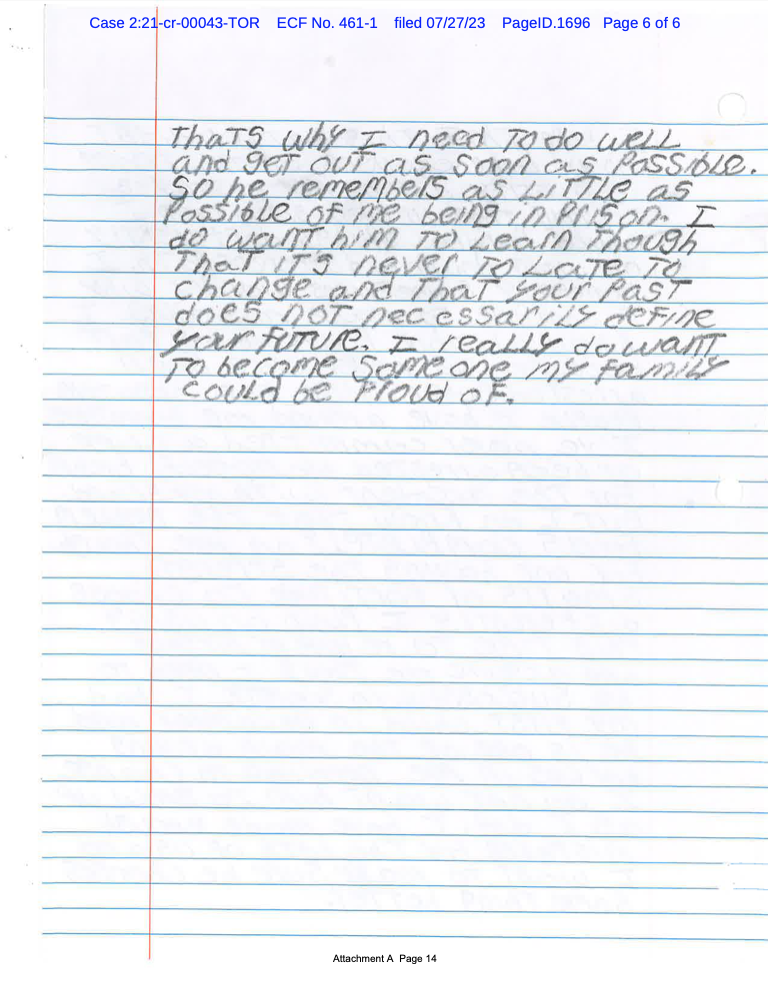 Case 2:21-cr-00043-TOR ECF No. 461-1 filed 07/27/23 PageID.1696 Page 6 of 6
Thats why I need to do well
and get out as soon as Possible.
So he remembers as Little as
Possible of me being in Prison. I
do want him to Learn though
That it's never to Late to
change and that your Past
does not necessarily define
your future. I really do want
To become someone my family
could be Proud of.
Attachment A Page 14